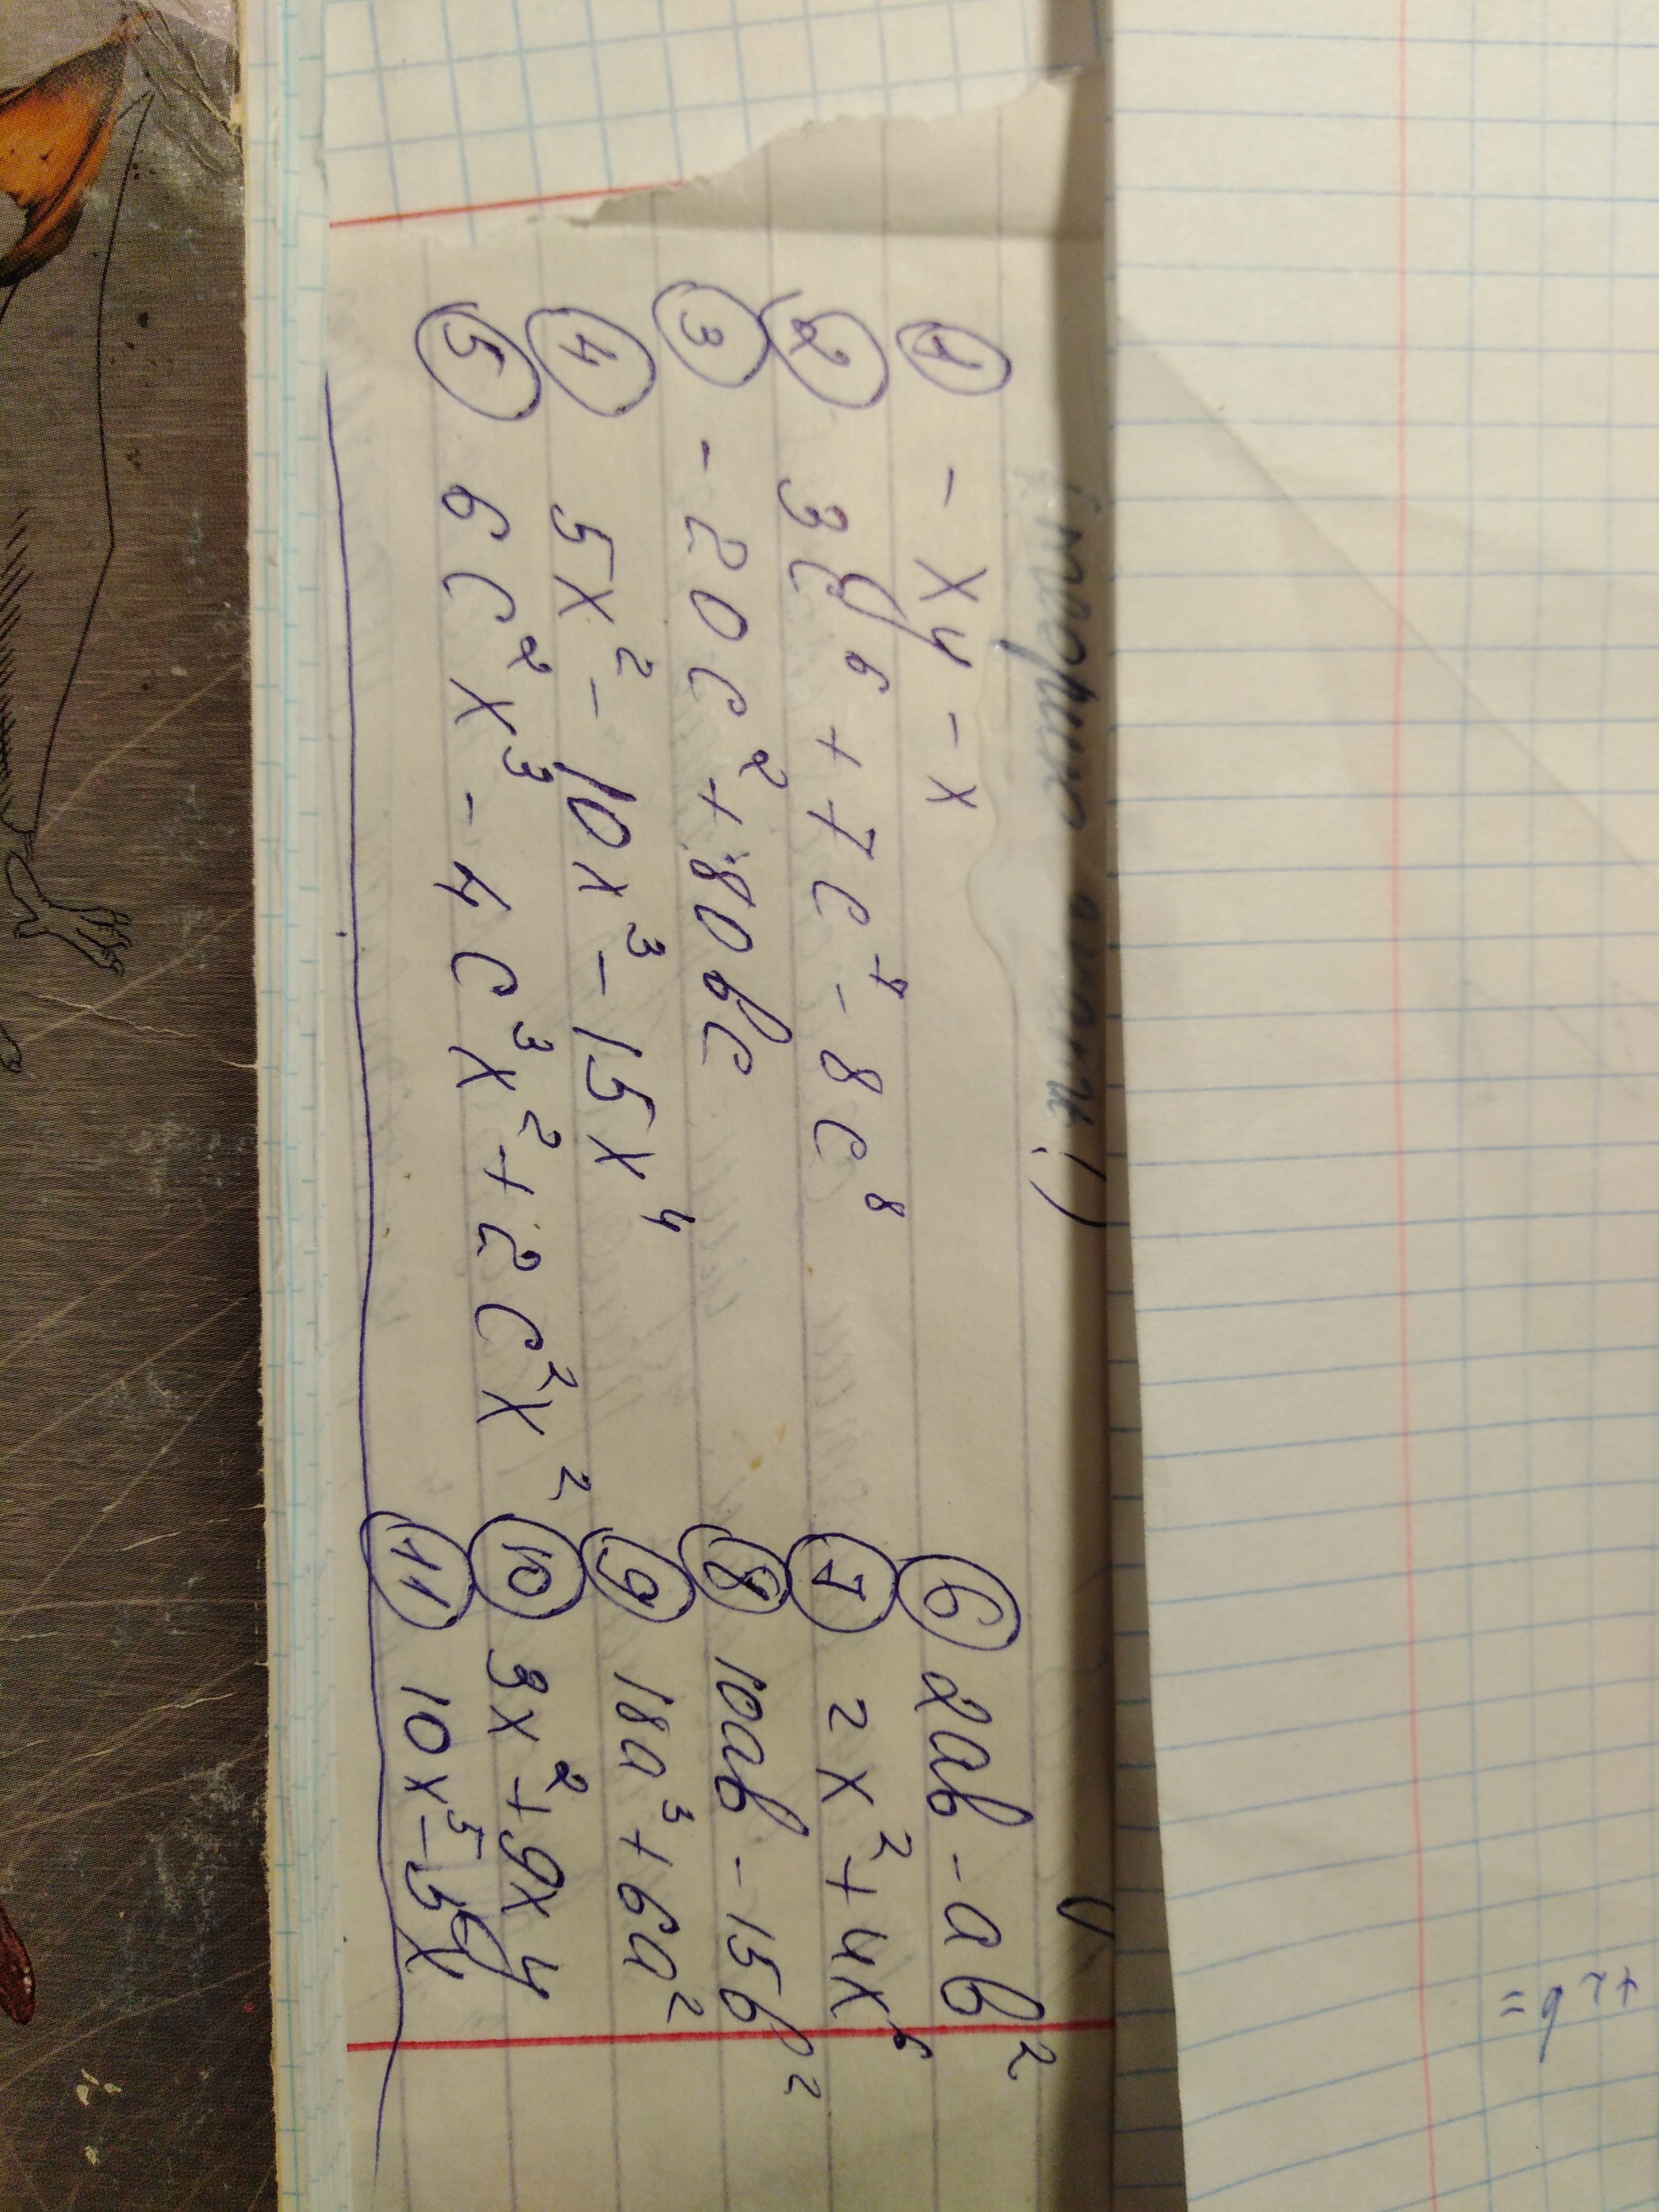 ① - xy - x
② 3c⁶ + 7c⁷ - 8c⁸
③ - 20c² + 80bc
④ 5x² - 10x³ - 15x⁴
⑤ 6c²x³ - 4c³x² + 2c²x²
⑥ 2ab - ab²
⑦ 2x² + 4x⁶
⑧ 10ab - 15b²
⑨ 18a³ + 6a²
⑩ 3x² + 9xy
⑪ 10x⁵ - 5x